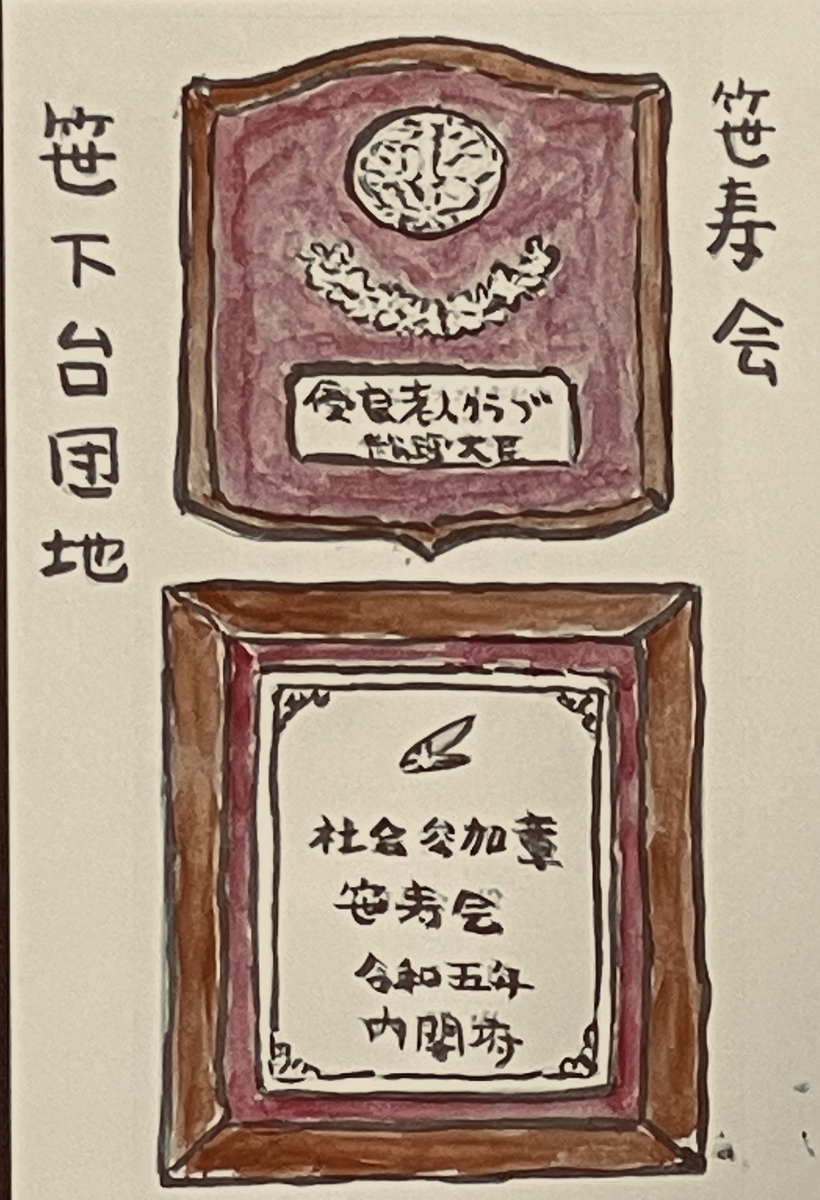 笹寿会
笹下台団地
優良老人クラブ
大臣
社会参加章
笹寿会
令和五年
内閣府